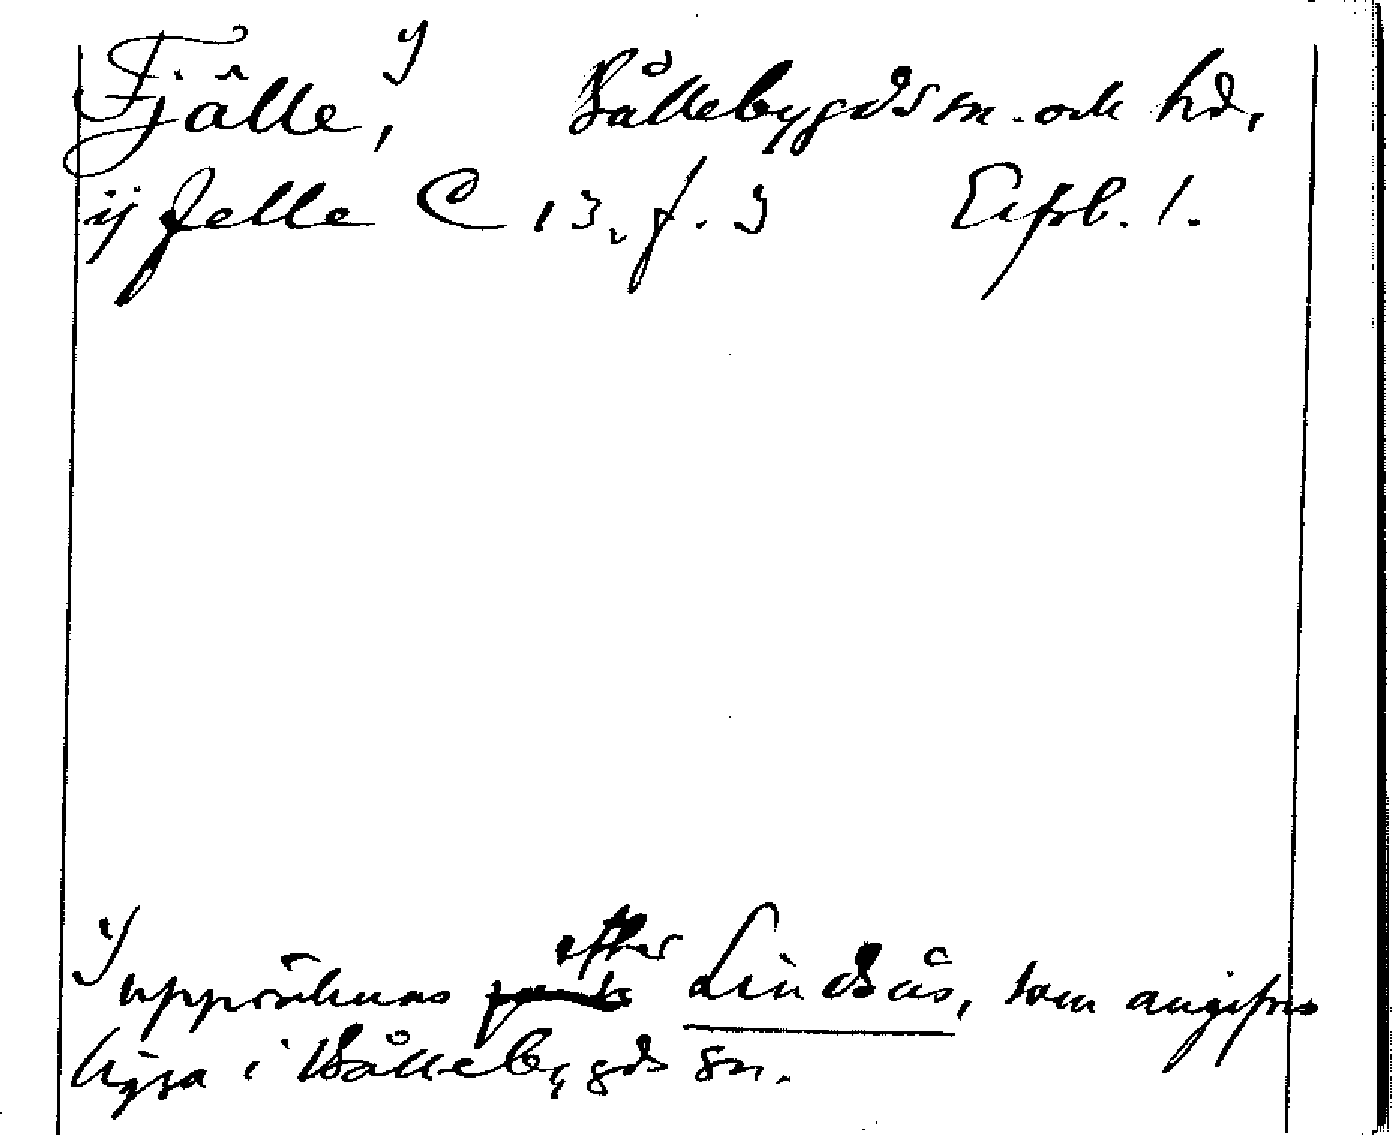 Fjälle, 1) Bållebygds sn. och hd,
ij Jelle C 13, f. 3 Elfsb. l.
1) uppräknas efter Lindås, som angifves
ligga i Bållebygds sn.